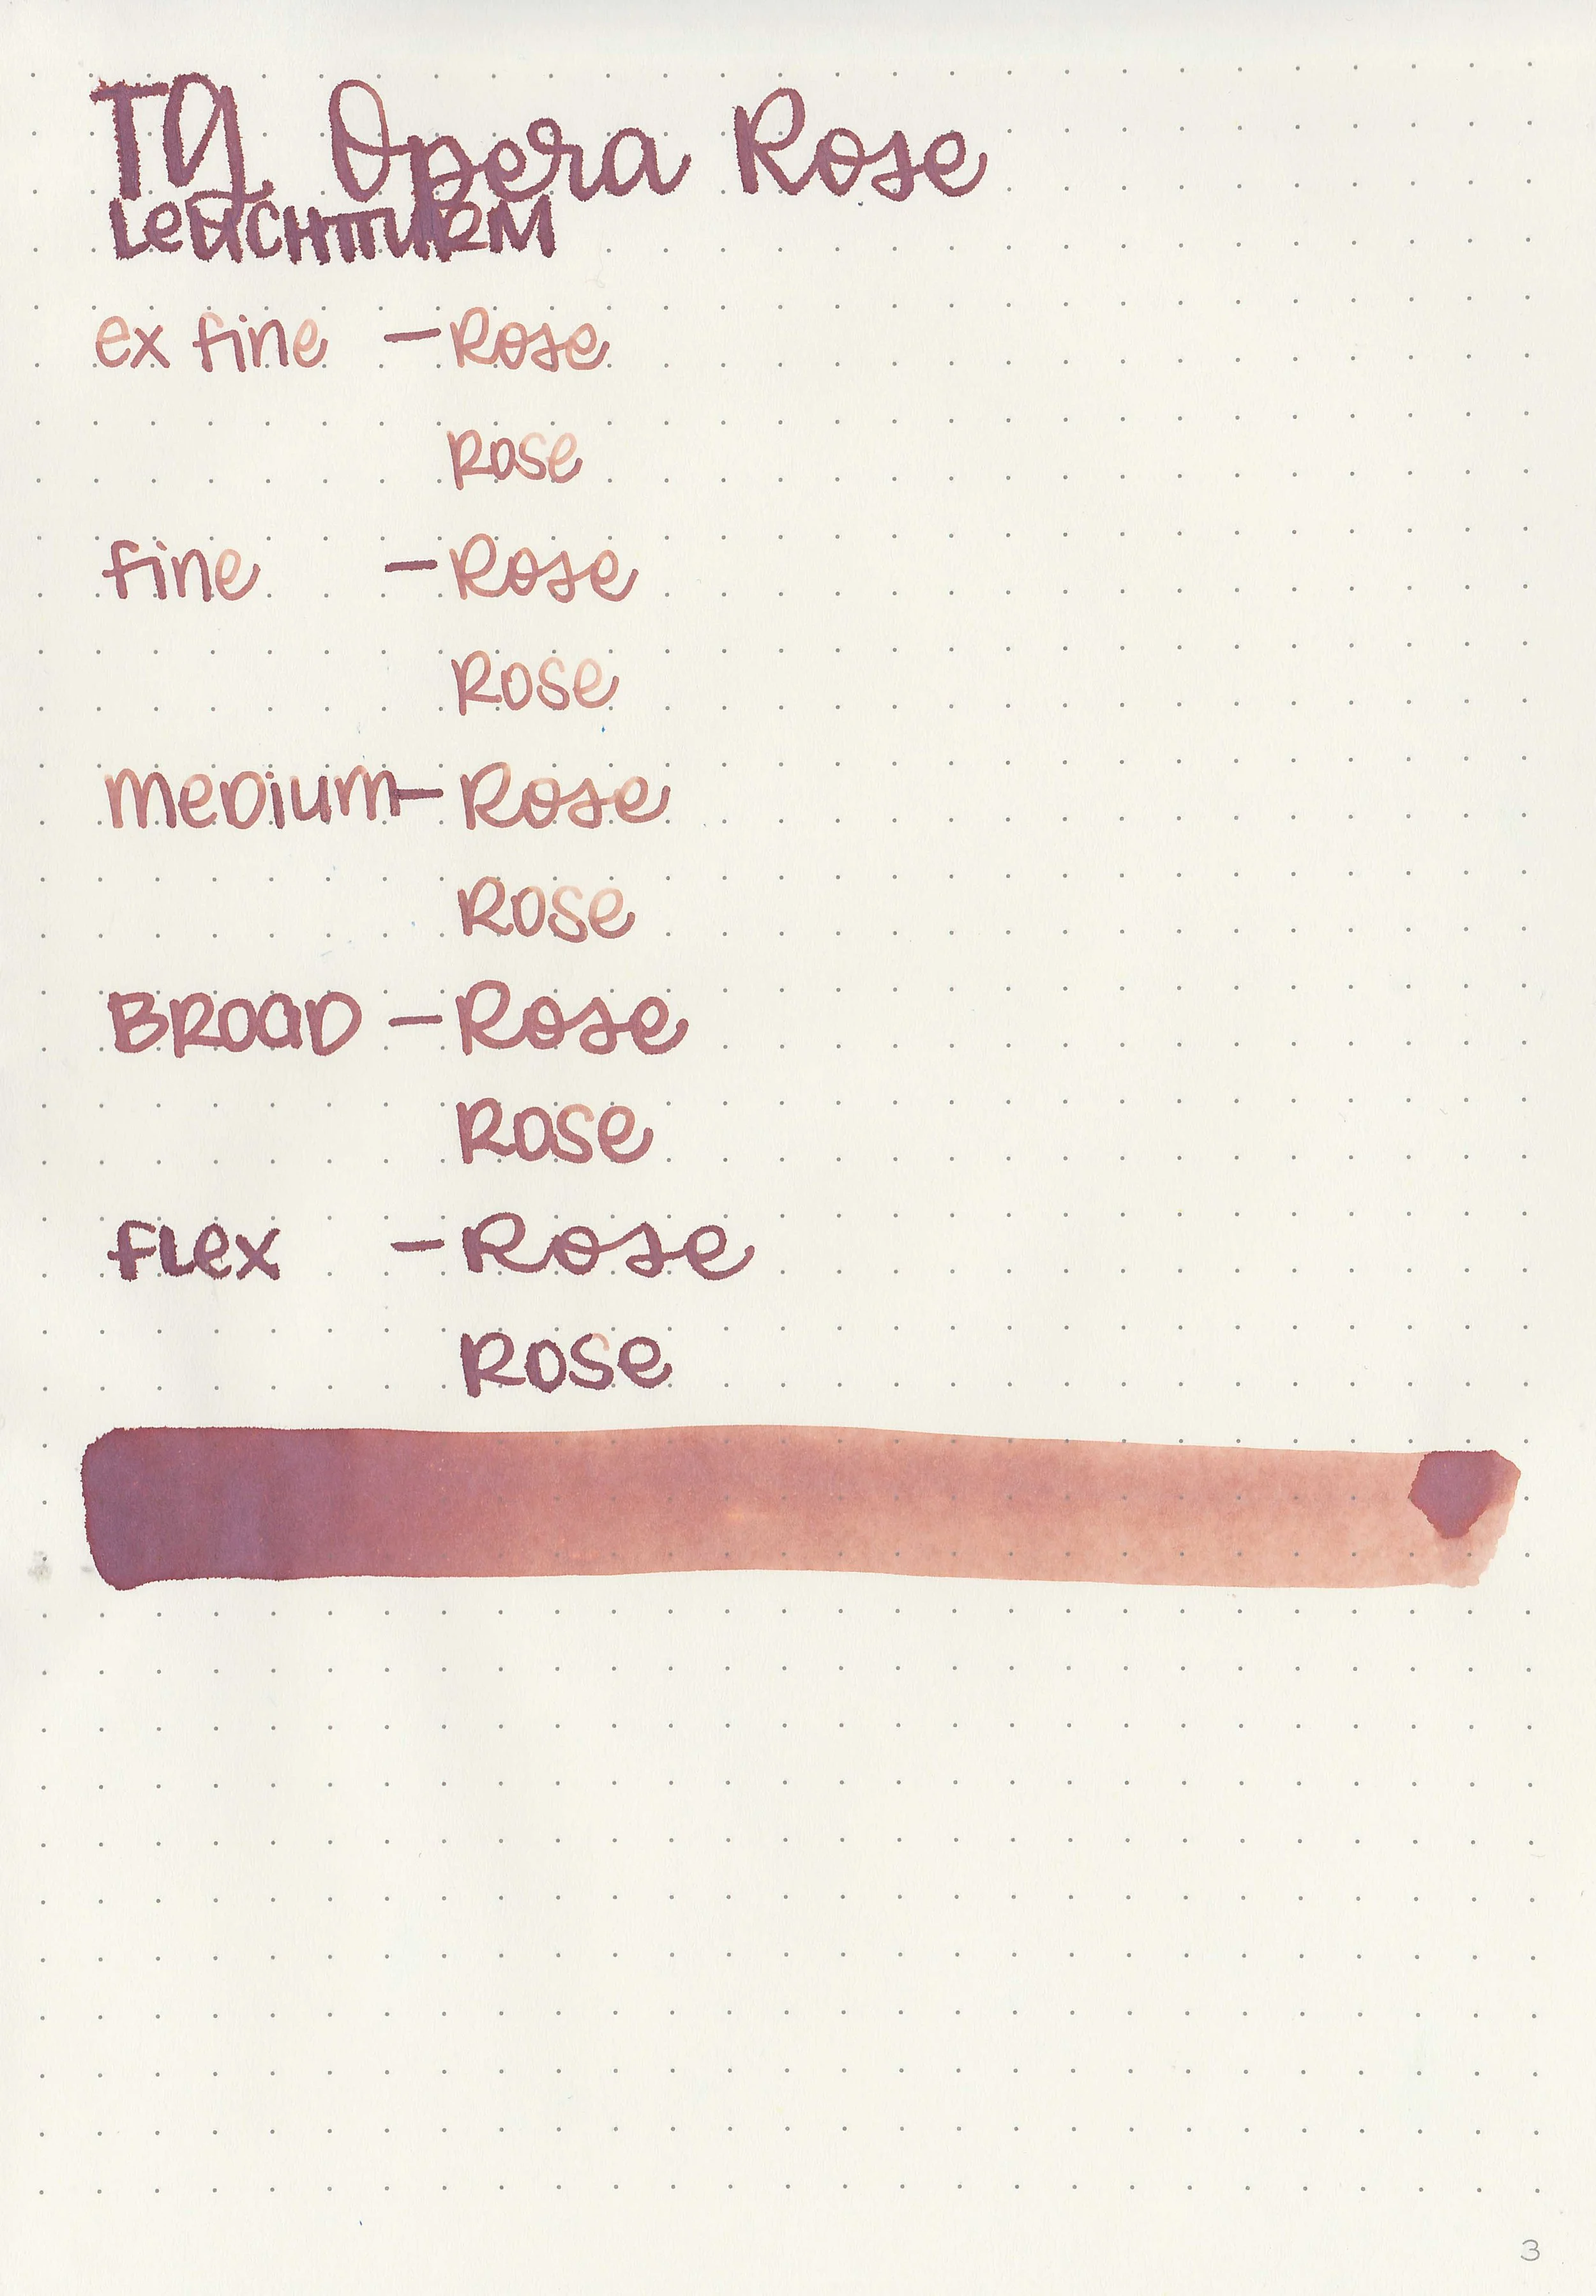 TG Opera Rose
LeUCHTTURM
ex fine - Rose
Rose
fine - Rose
Rose
meDium - Rose
Rose
BROaD - Rose
Rose
fLex - Rose
Rose
3